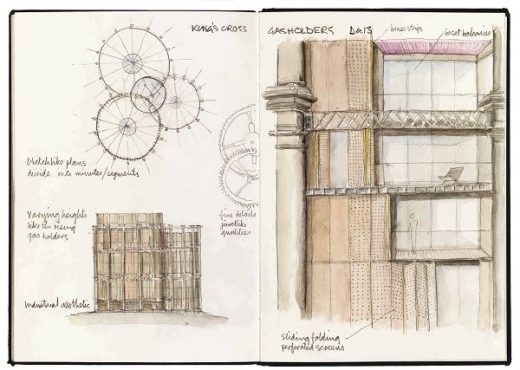 KING'S CROSS
GASHOLDERS
Watchlike plans
divide into minutes/segments
varying heights
like the rising
gas holders
fine details
jewel like
qualities
Industrial aesthetic
brass strips
inset balconies
sliding folding
perforated screens